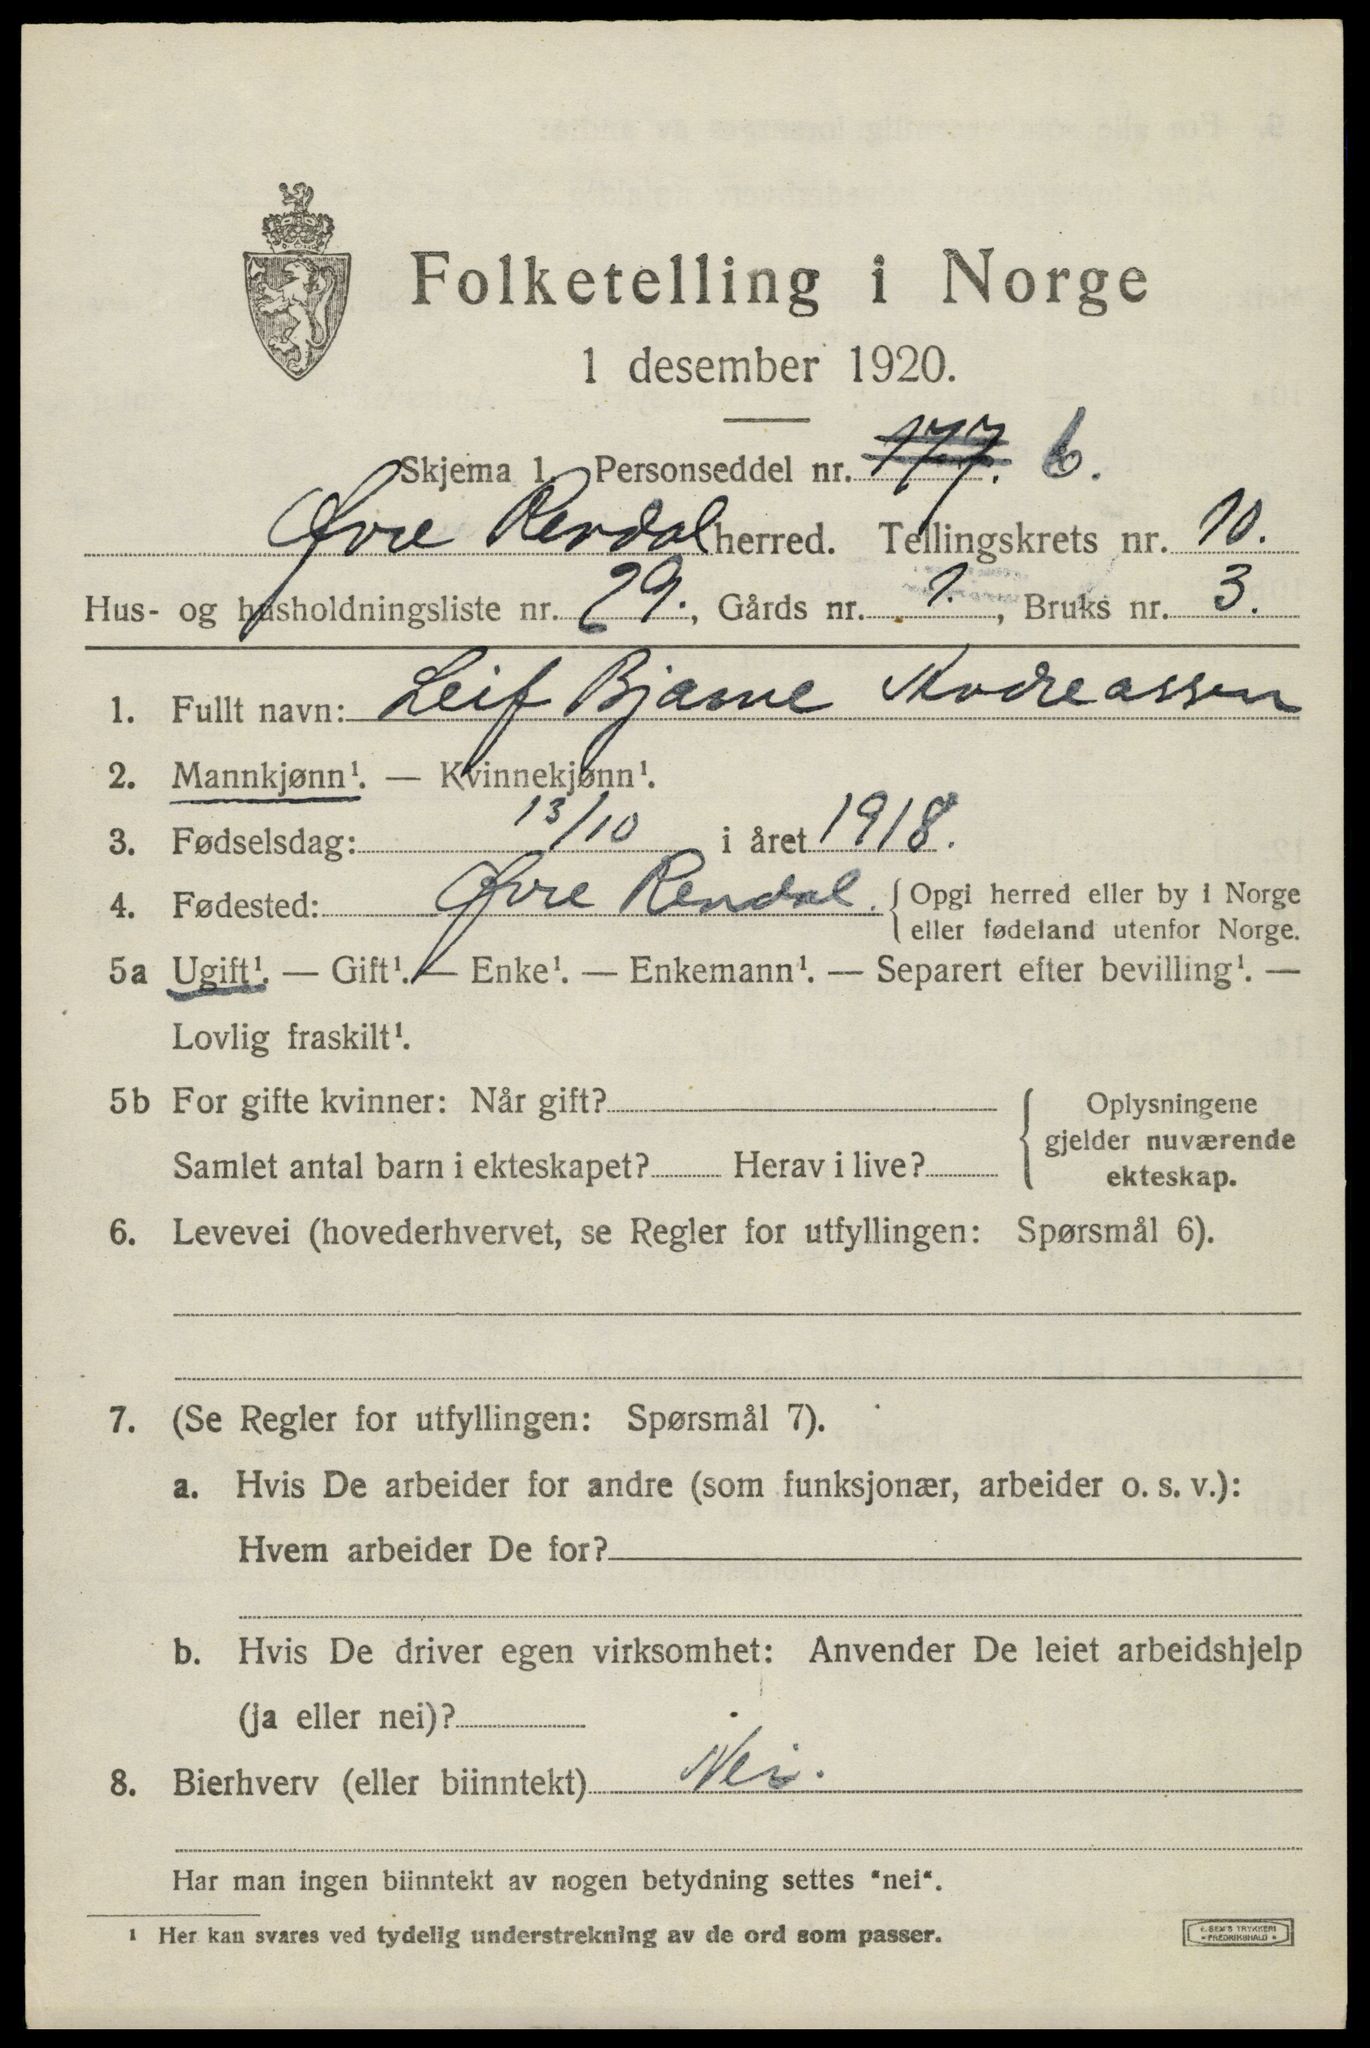 Folketelling i Norge
1 desember 1920.
Skjema 1 Personseddel nr. 177. 6.
Øvre Rendal herred. Tellingskrets nr. 10.
Hus- og husholdningsliste nr. 29., Gårds nr. 1., Bruks nr. 3.
1. Fullt navn: Leif Bjarne Andreassen
2. Mannkjønn¹. — Kvinnekjønn¹.
3. Fødselsdag: 13/10 i året 1918.
4. Fødested: Øvre Rendal. { Opgi herred eller by i Norge
eller fødeland utenfor Norge.
5a Ugift¹. — Gift¹. — Enke¹. — Enkemann¹. — Separert efter bevilling¹. —
Lovlig fraskilt¹.
5b For gifte kvinner: Når gift?
Samlet antal barn i ekteskapet? Herav i live?
{ Oplysningene
gjelder nuværende
ekteskap.
6. Levevei (hovederhvervet, se Regler for utfyllingen: Spørsmål 6).
7. (Se Regler for utfyllingen: Spørsmål 7).
a. Hvis De arbeider for andre (som funksjonær, arbeider o. s. v.):
Hvem arbeider De for?
b. Hvis De driver egen virksomhet: Anvender De leiet arbeidshjelp
(ja eller nei)?
8. Bierhverv (eller biinntekt) Nei.
Har man ingen biinntekt av nogen betydning settes "nei".
¹ Her kan svares ved tydelig understrekning av de ord som passer.
E. SEM'S TRYKKERI
• FREDRIKSHALD •